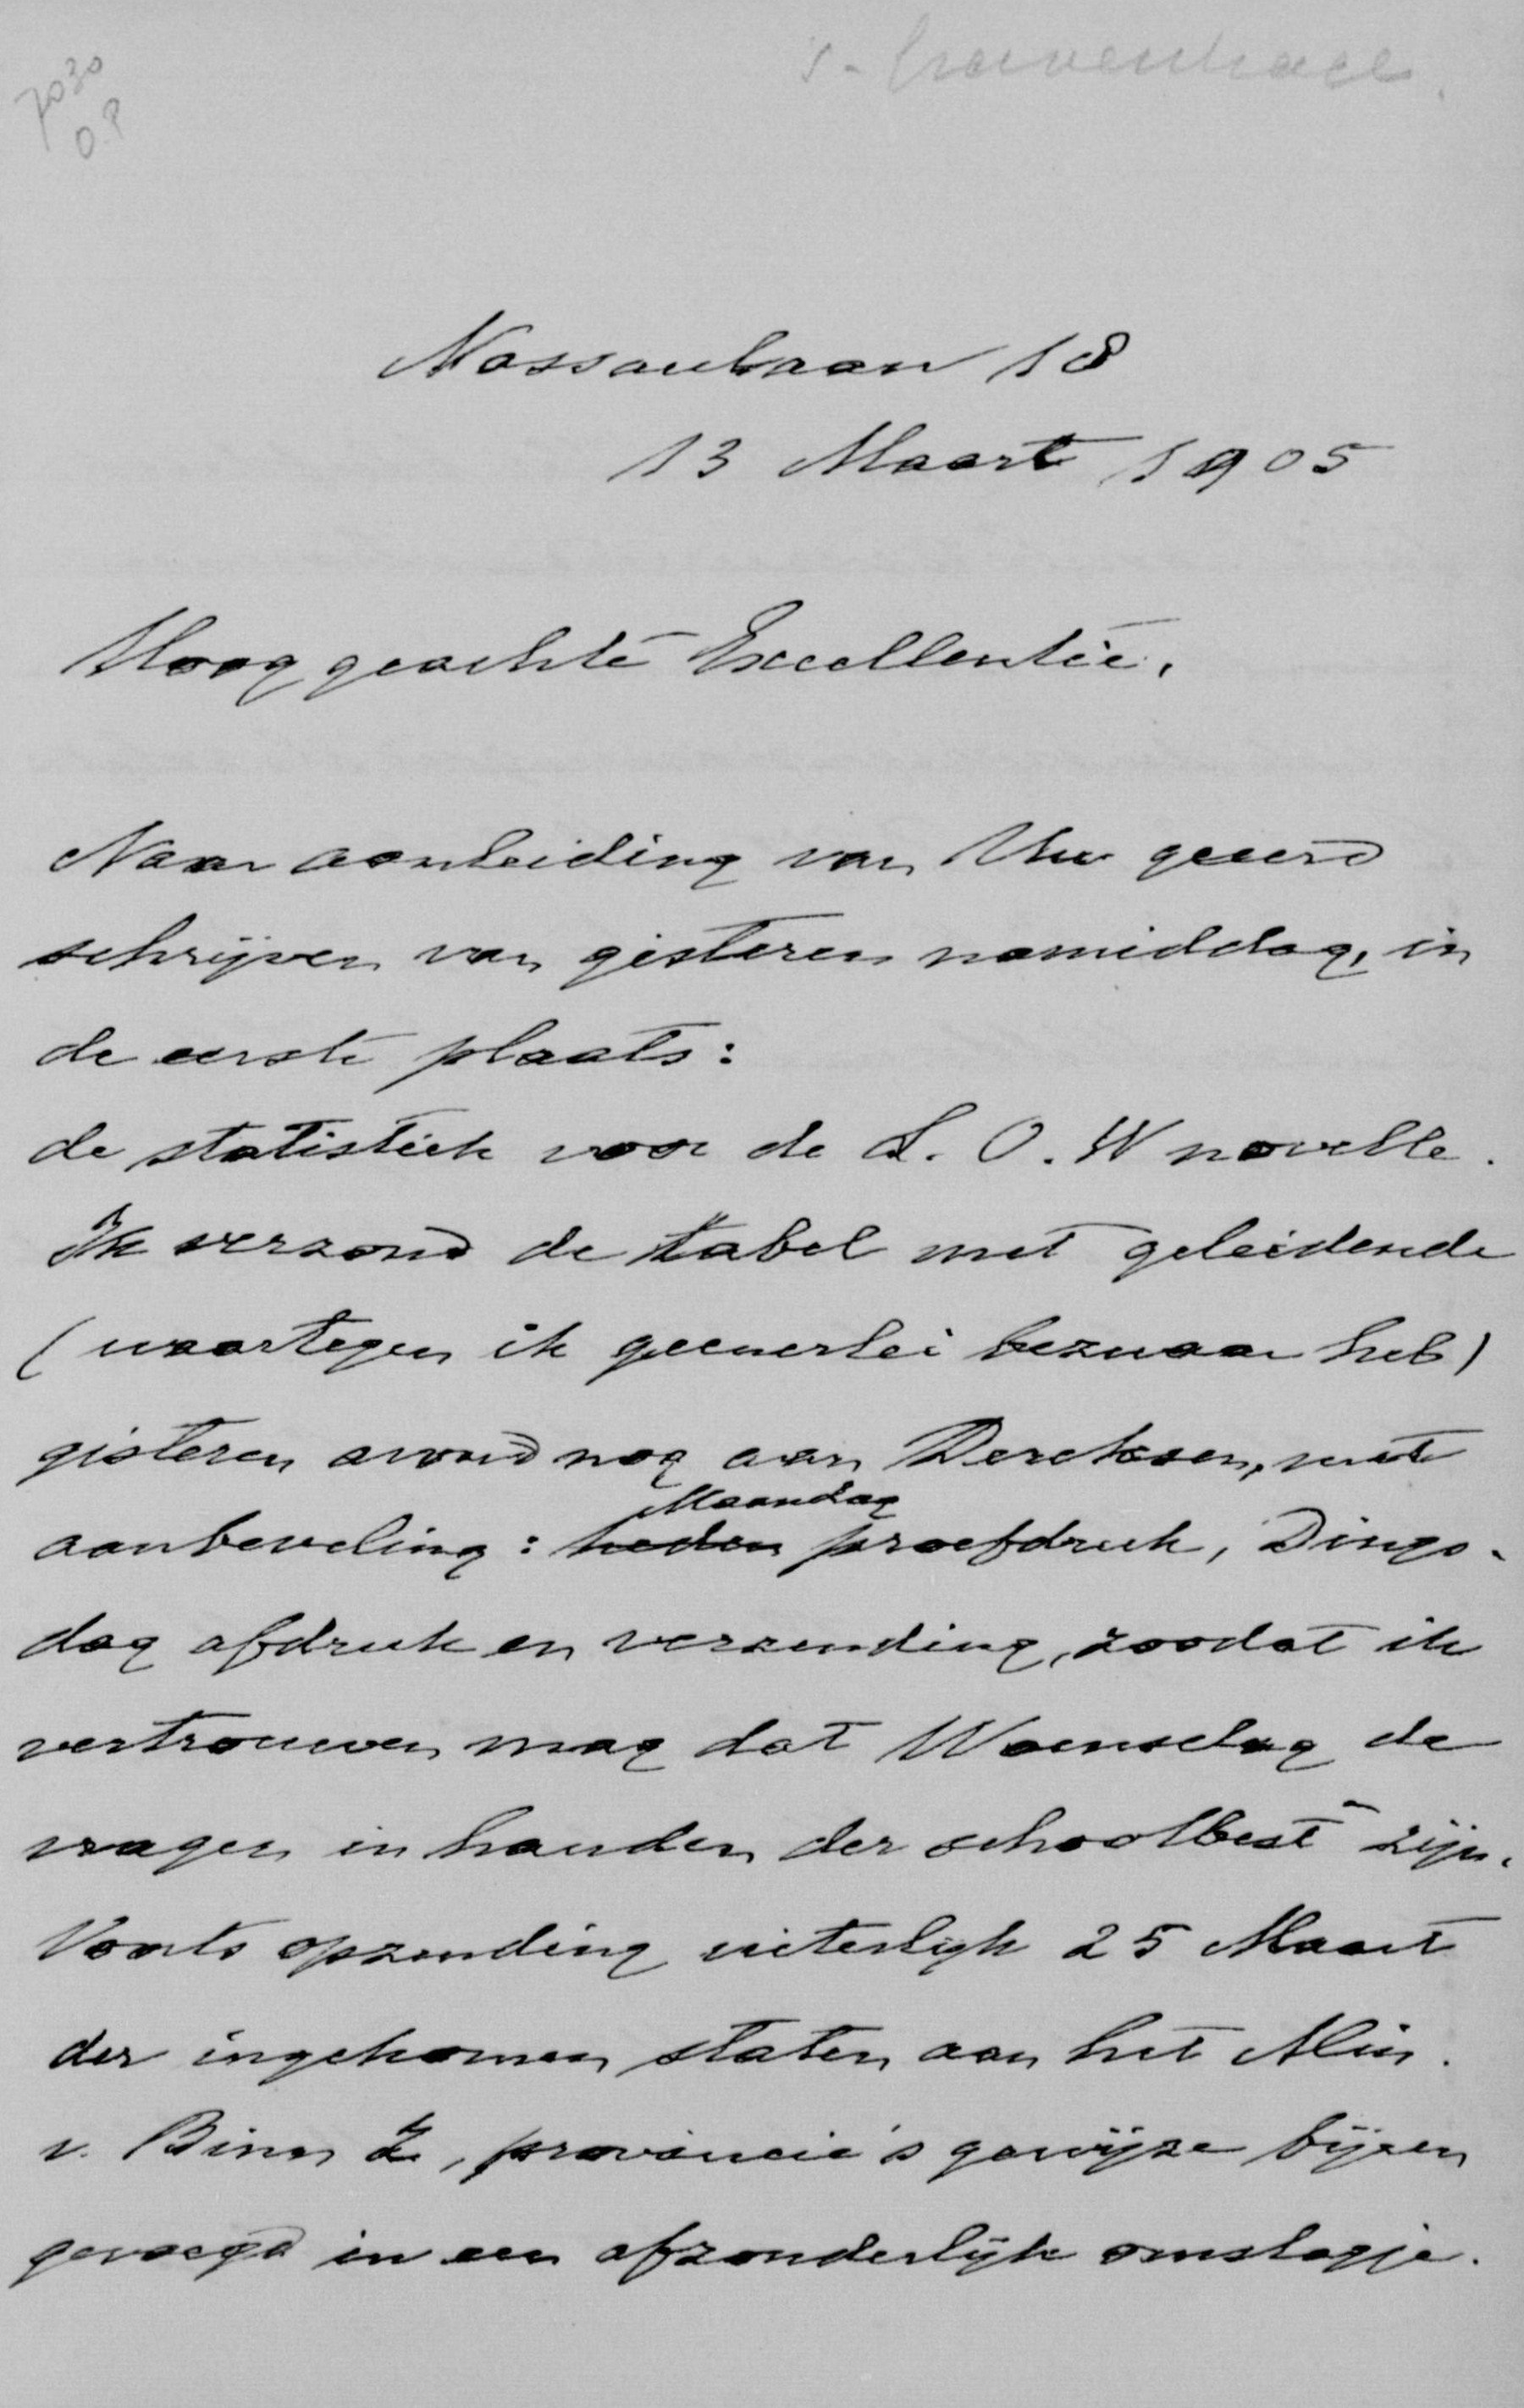 7030
O.P
's-Gravenhage.
Nassaulaan 18
13 Maart 1905
Hooggeachte Excellentie,
Naar aanleiding van Uw geeerd
schrijven van gisteren namiddag, in
de eerste plaats:
de statistiek voor de L. O. W novelle.
Ik verzond de tabel met geleidende
(waartegen ik geenerlei bezwaar heb)
gisteren avond nog aan Dercksen, met
Maandag
aanbeveling: heden proefdruk, Dings-
dag afdruk en verzending, zoodat ik
vertrouwen mag dat Woensdag de
vragen in handen der schoolbest~ zijn.
Voorts opzending uiterlijk 25 Maart
der ingekomen staten aan het Min.
v. Binn Z, provincie's gewijze bijeen
gevoegd in een afzonderlijk omslagje.